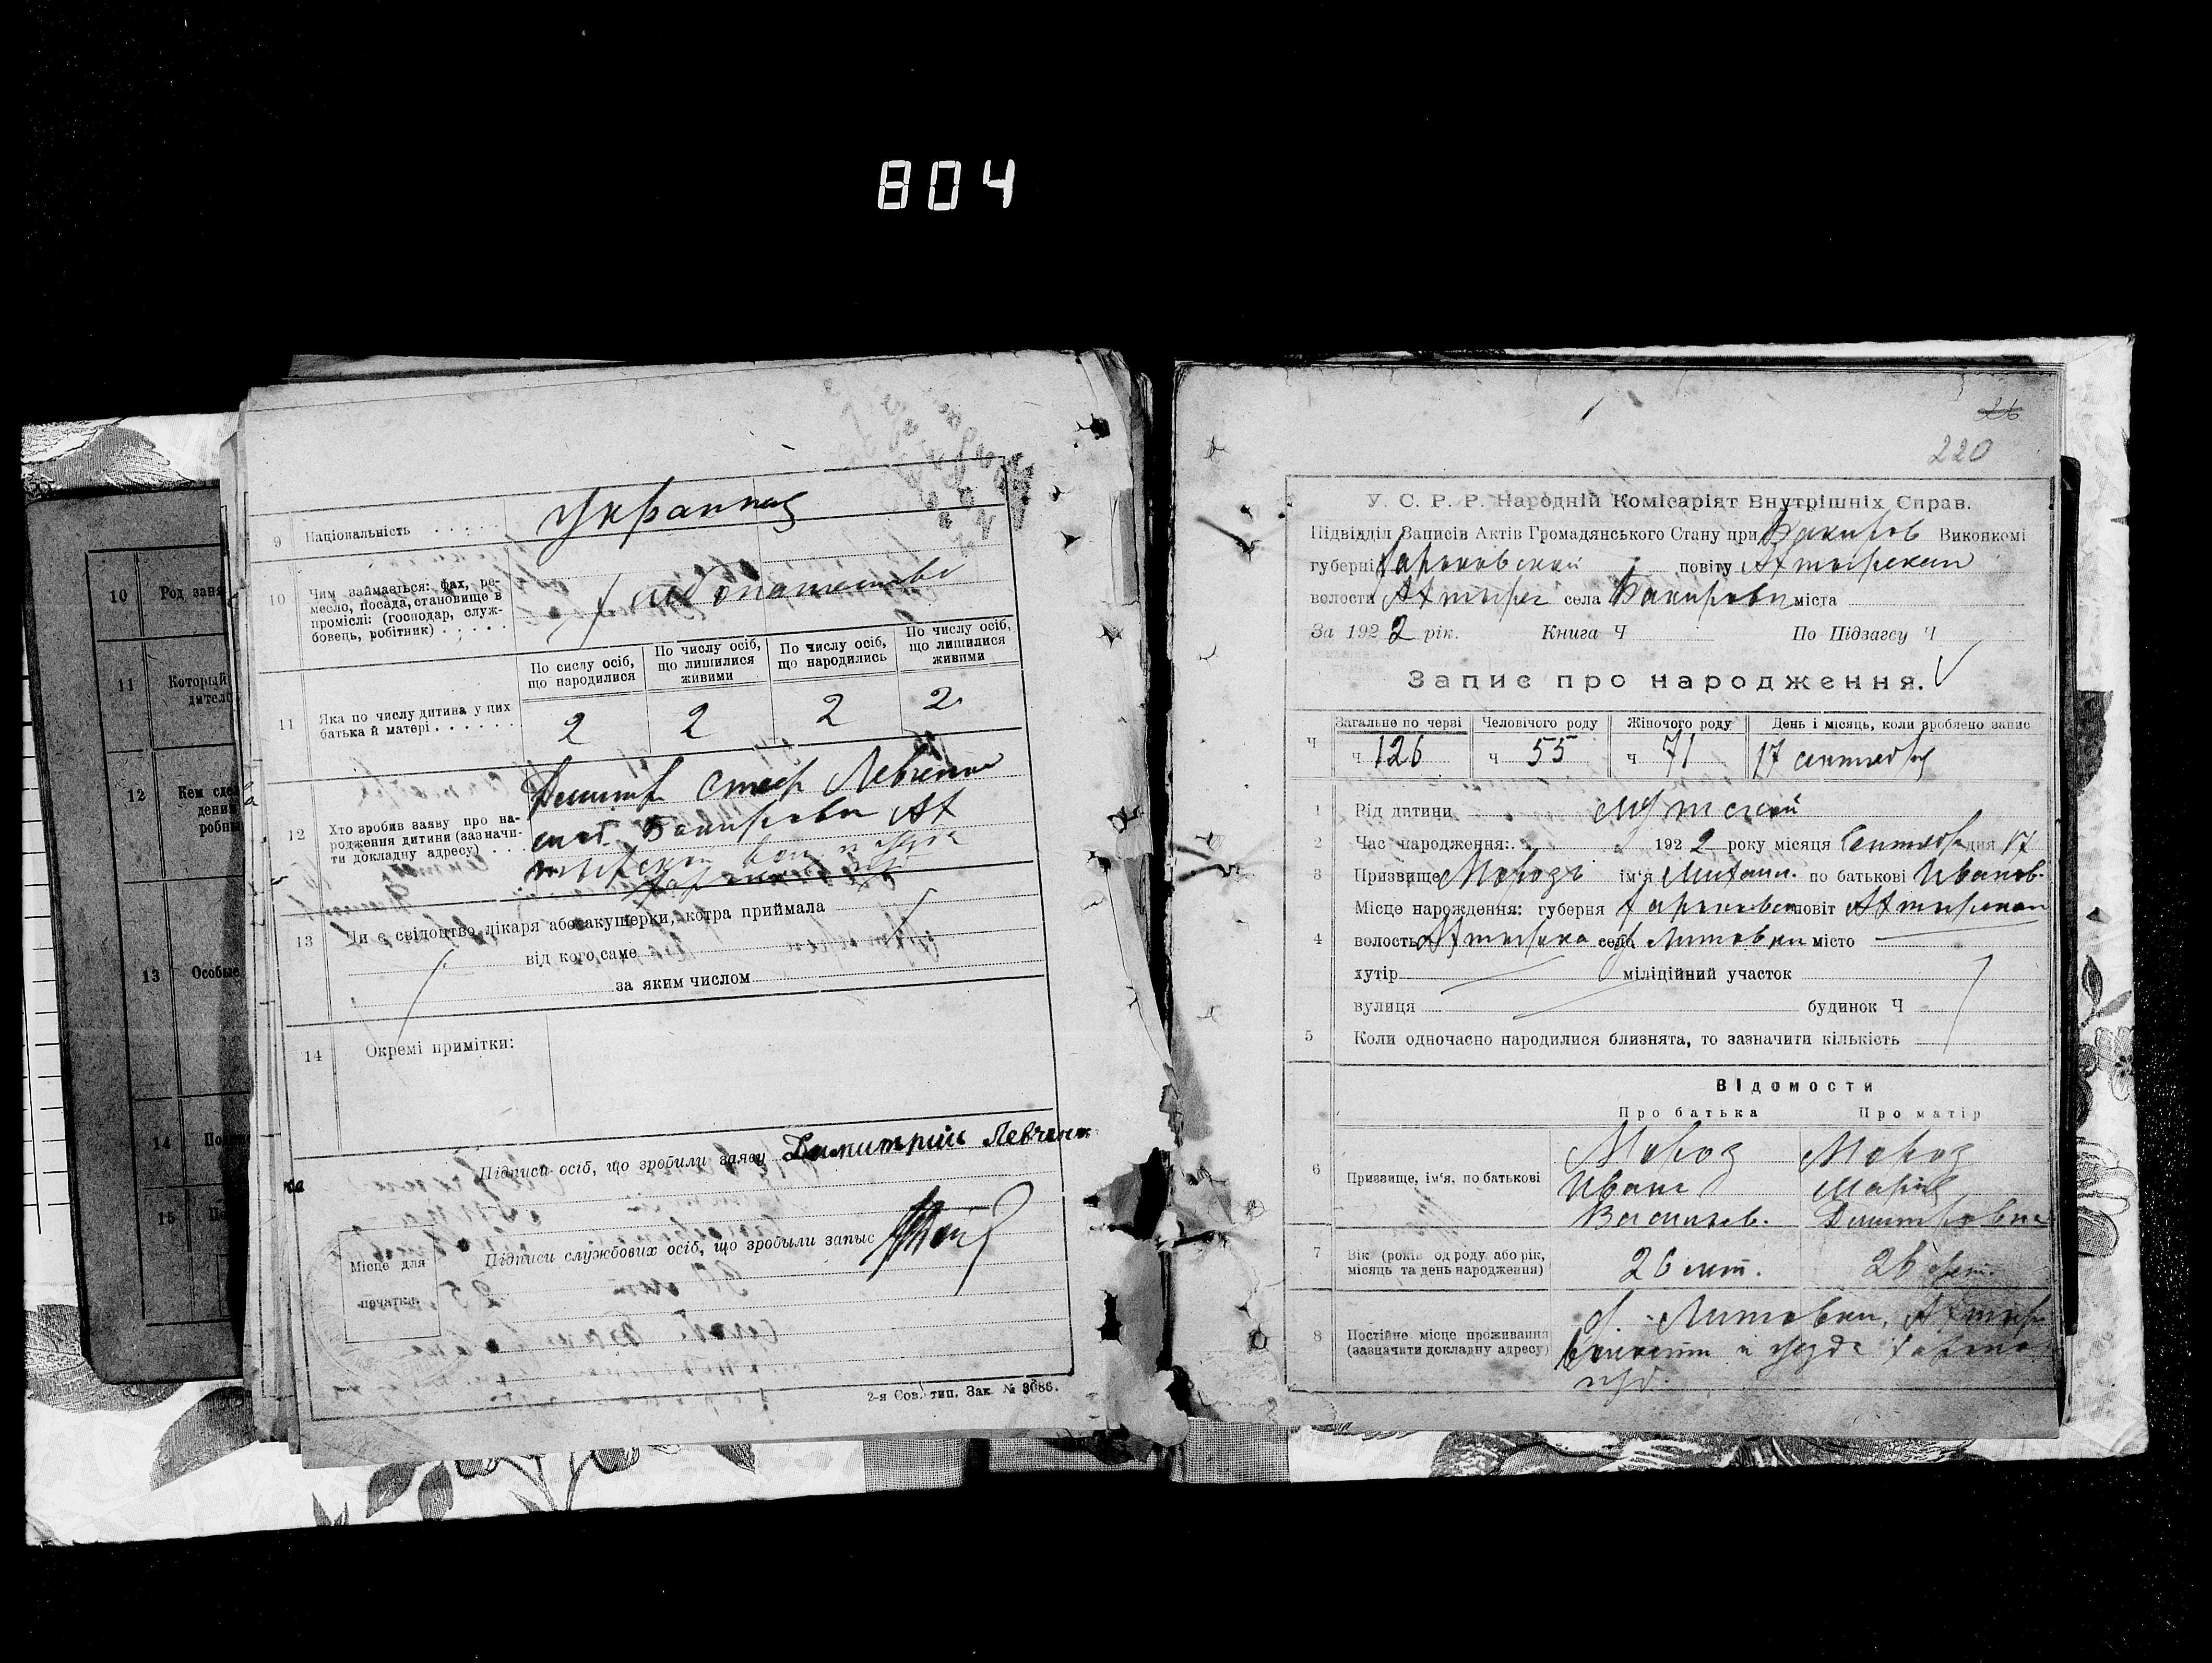 804
10 Род заня
11 Который
дител
12 Кем сде
дени
робн
13 Особые
14
15
9 Національність
Украинец
10 Чим займається: фах, ре-
месло, посада, становище в
промислі: (господар, служ-
бовець, робітник)
Хлебопашество
11 Яка по числу дитина у цих
батька й матері
По сислу осіб,
що народилися
По числу осіб,
що лишилися
живими
По числу осіб,
що народились
По числу осіб,
що лишилися
живими
2 2 2 2
12 Хто зробив заяву про на-
родження дитини (зазначи-
ти докладну адресу)
Левченко
Бакировки Ах
тырской вол и уезда
13 Чи є свідоцтво лікаря або акушерки, котра приймала
від кого саме
за яким числом
14 Окремі примітки:
Підписи осіб, що зробили заяву Димитрий Левченк
Підписи службових осіб, що зробили запыс
Місце для
початки.
2-я Сов. тип. Зак. № 3686.
26
220
У. С. Р. Р. Народній Комісаріят Внутрішніх Справ.
Підвідділ Записів Актів Громадянського Стану при Бакиров Виконкомі
губерні Харьковской повіту Ахтырском
волости Ахтырс села Бакировки міста
За 1922 рік. Книга Ч По Підзагсу Ч
Запис про народження.
Ч
Загальне по черзі Человічого роду Жіночого роду День і місяць, коли зроблено запис
ч 126 ч 55 ч 71 17 сентября
1 Рід дитини мужской
2 Час народження: 1922 року місяця Сентября дня 17
3 Призвище Морозъ ім'я Михаил. по батькові Иванов.
4 Місце народження: губерня Харьковск повіт Ахтырском
волость Ахтырска село Литовки місто
хутір міліційний участок
вулиця будинок Ч
5 Коли одночасно народилися близнята, то зазначити кількість
Відомости
Про батька Про матір
6 Призвище, ім'я, по батькові
Мороз Мороз
Иван Мария
Васильев. Дмитровна
7 Вік (років од роду або рік,
місяць та день народження)
26 лет. 26 лет.
8 Постійне місце проживання
(зазначити докладну адресу)
д. Литовки, Ахтыр
волости и уезда Харько
губ.